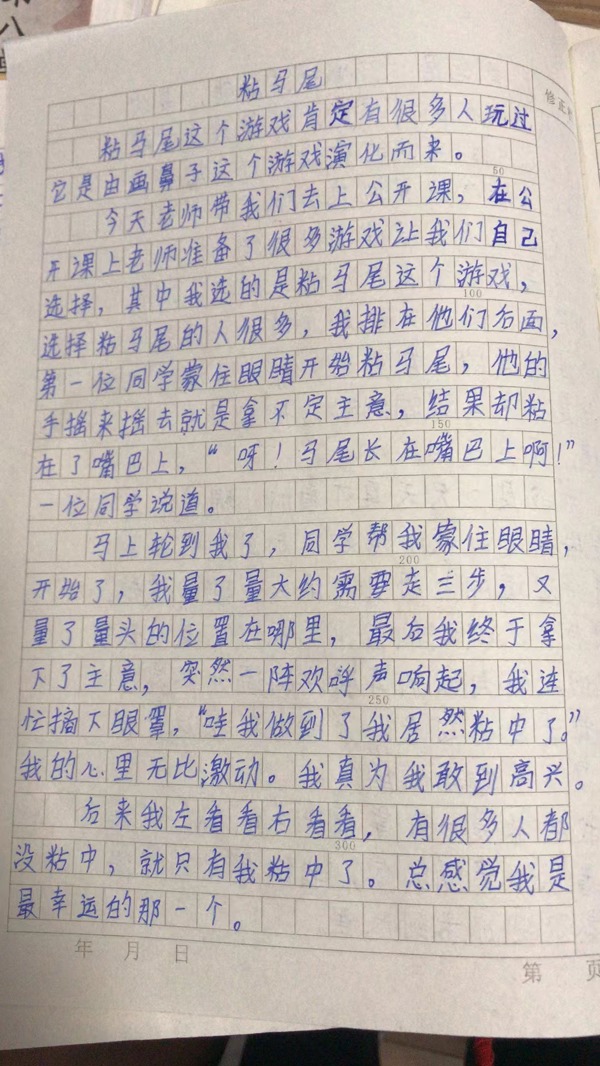 八
粘马尾
修正
粘马尾这个游戏肯定有很多人玩过
它是由画鼻子这个游戏演化而来。
50
今天老师带我们去上公开课，在公
开课上老师准备了很多游戏让我们自己
选择，其中我选的是粘马尾这个游戏，
100
选择粘马尾的人很多，我排在他们后面，
第一位同学蒙住眼睛开始粘马尾，他的
手摇来摇去就是拿不定主意，结果却粘
150
在了嘴巴上，“呀！马尾长在嘴巴上啊！”
一位同学说道。
马上轮到我了，同学帮我蒙住眼睛，
200
开始了，我量了量大约需要走三步，又
量了量头的位置在哪里，最后我终于拿
下了主意，突然一阵欢呼声响起，我连
250
忙摘下眼罩，“哇我做到了我居然粘中了。”
我的心里无比激动。我真为我敢到高兴。
后来我左看看右看看，有很多人都
300
没粘中，就只有我粘中了。总感觉我是
最幸运的那一个。
年 月 日
第 页